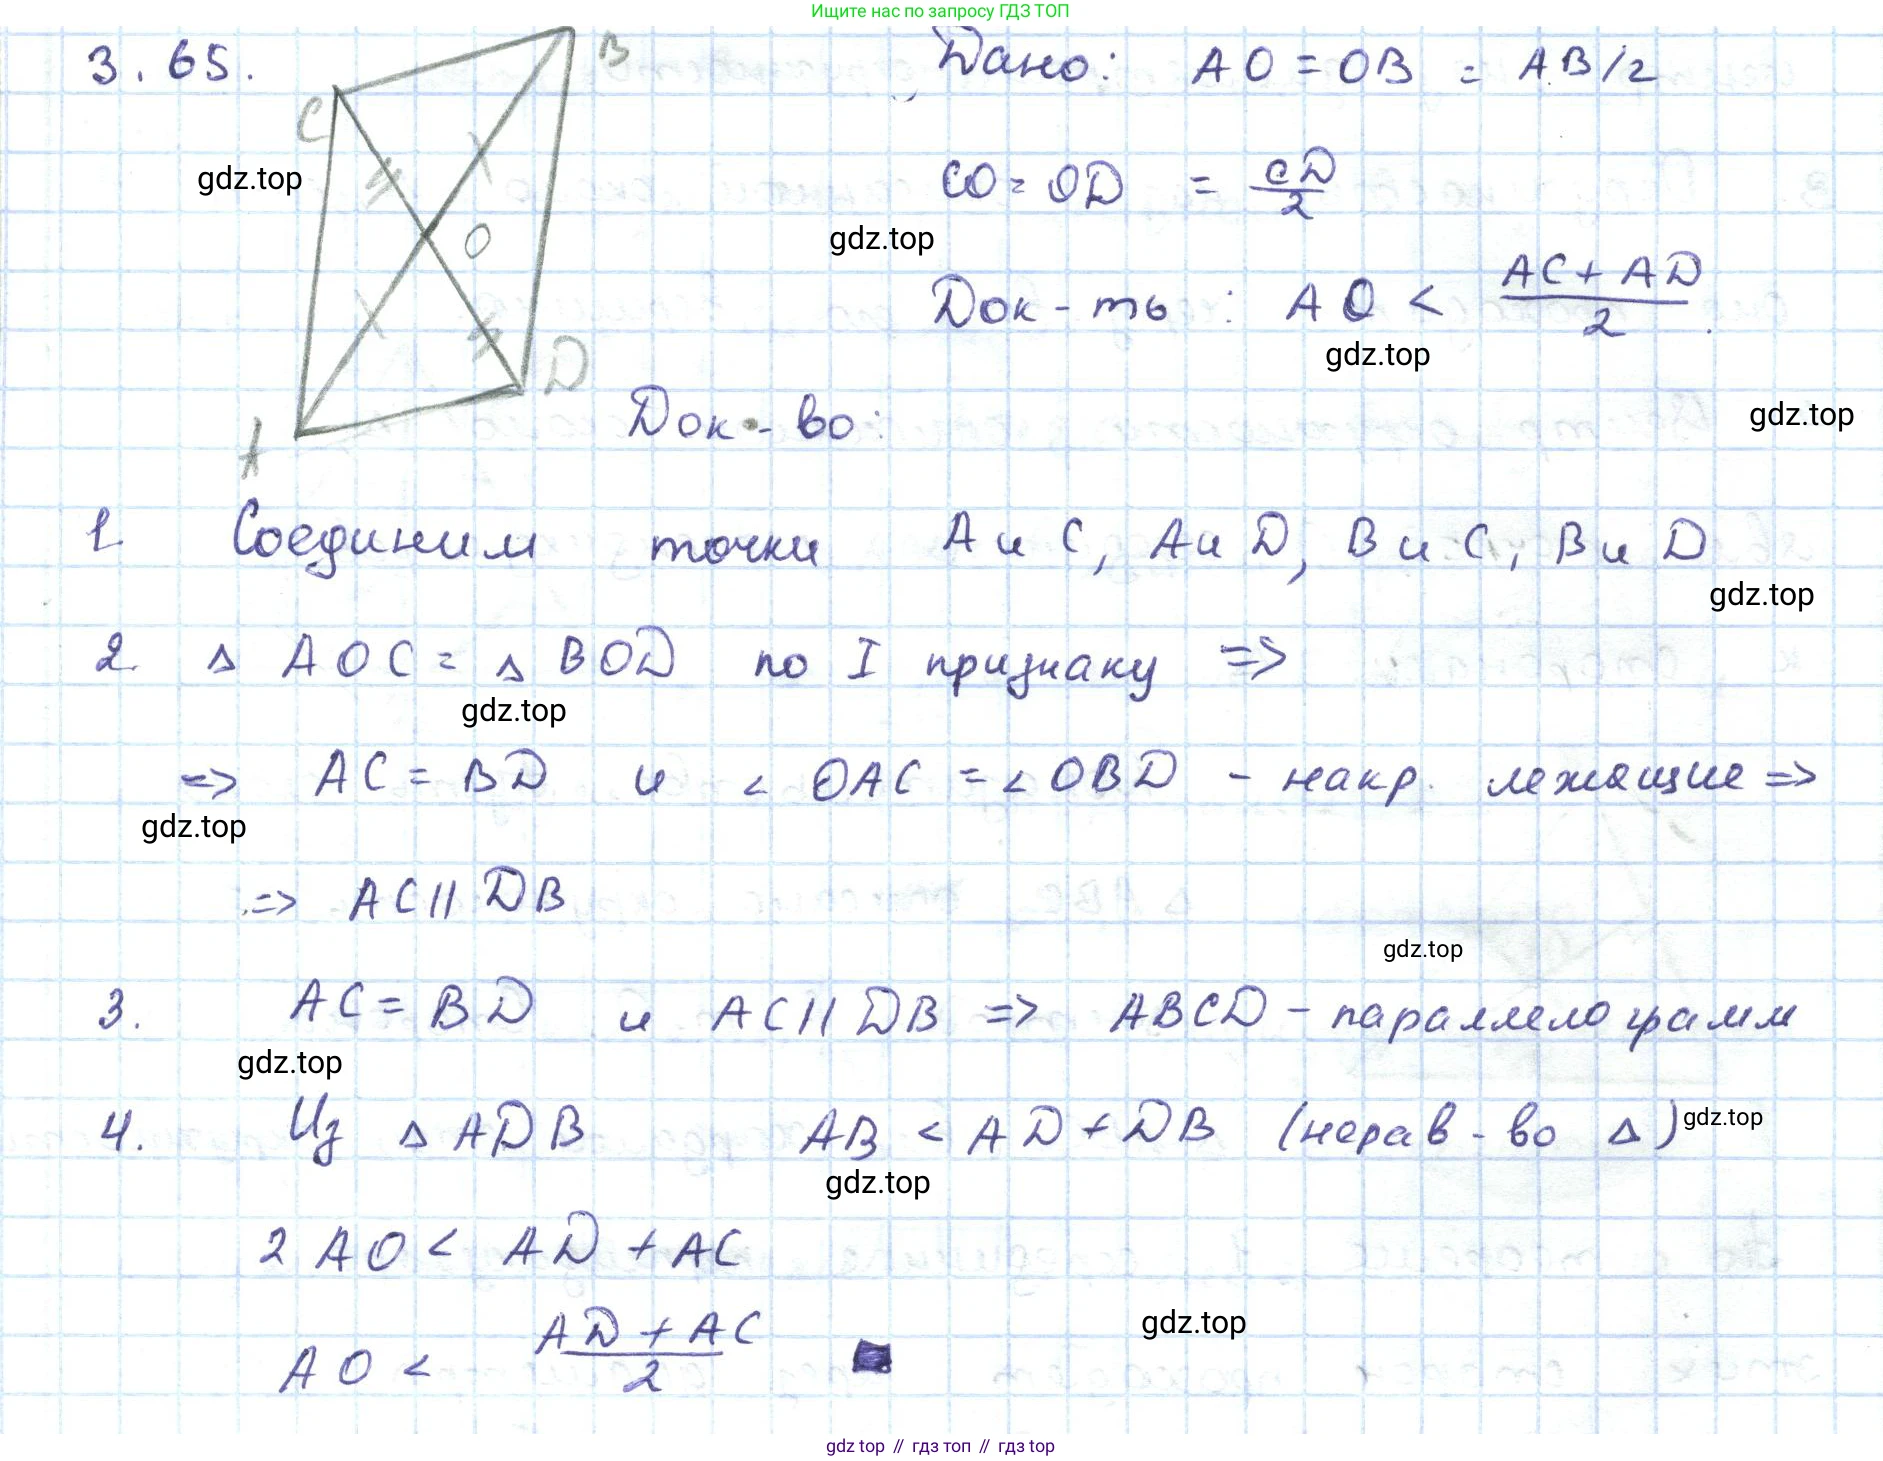 Ищите нас по запросу ГДЗ ТОП
3.65.
B
C
O
D
A
Дано: AO = OB = AB/2
gdz.top
CO = OD = CD/2
gdz.top
Док-ть: AO < (AC + AD)/2.
gdz.top
gdz.top
Док-во:
1. Соединим точки A и C, A и D, B и C, B и D
gdz.top
2. Δ AOC = Δ BOD по I признаку =>
gdz.top
=> AC = BD и < OAC = < OBD - накр. лежащие =>
gdz.top
=> AC || DB
gdz.top
3. AC = BD и AC || DB => ABCD - параллелограмм
gdz.top
4. Из Δ ADB AB < AD + DB (нерав-во Δ)
gdz.top
gdz.top
2 AO < AD + AC
gdz.top
AO < (AD + AC)/2
gdz top // гдз топ // гдз top